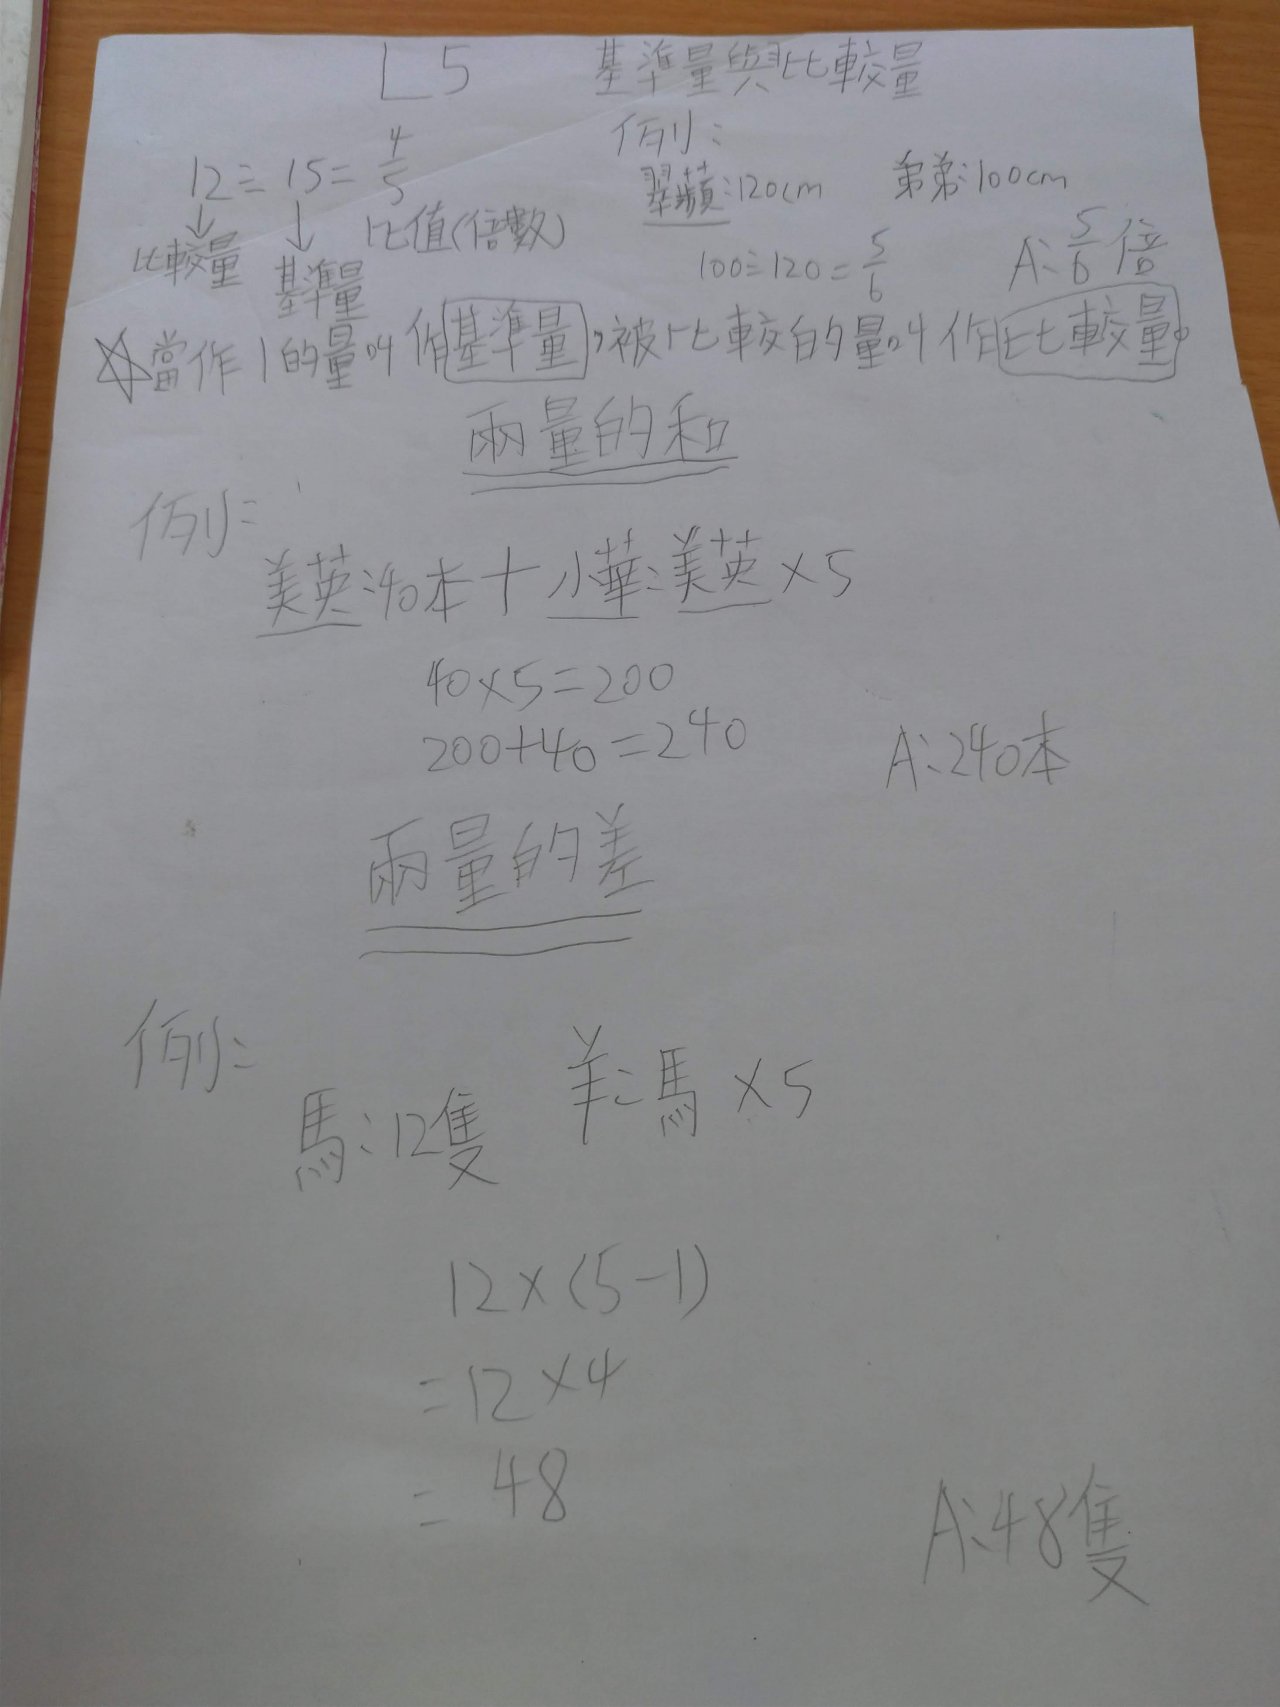 L5 基準量與比較量
12÷15=4/5
比較量 基準量 比值(倍數)
例:
翠蘋:120cm 弟弟:100cm
100÷120=5/6 A:5/6倍
☆當作1的量叫作基準量,被比較的量叫作比較量。
兩量的和
例:
美英:40本+小華:美英×5
40×5=200
200+40=240 A:240本
兩量的差
例:
馬:12隻 羊:馬×5
12×(5-1)
=12×4
=48
A:48隻